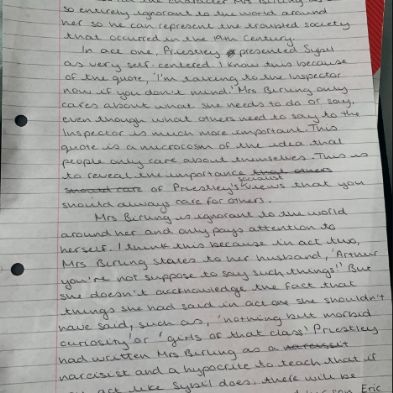 the character Mrs Birling as
so entirely ignorant to the world around
her so he can represent the society
that occurred in the 19th Century.
In act one, Priestley presented Sybil
as very self-centered. I know this because
of the quote, 'I'm talking to the Inspector
now if you don't mind' Mrs Birling only
cares about what she needs to do or say,
even though what others need to say to the
Inspector is much more important. This
quote is a microcosm of the idea that
people only care about themselves. This is
to reveal the importance that others
socialist
should care of Priestley's views that you
should always care for others.
Mrs Birling is ignorant to the world
around her and only pays attention to
herself. I think this because in act two,
Mrs Birling states to her husband, 'Arthur
you're not suppose to say such things!' But
she doesn't acknowledge the fact that
things she had said in act one she shouldn't
have said, such as, 'nothing but morbid
curiosity' or 'girls of that class' Priestley
had written Mrs Birling as a
narcissist and a hypocrite to teach that if
act like Sybil does, there will be
Eric